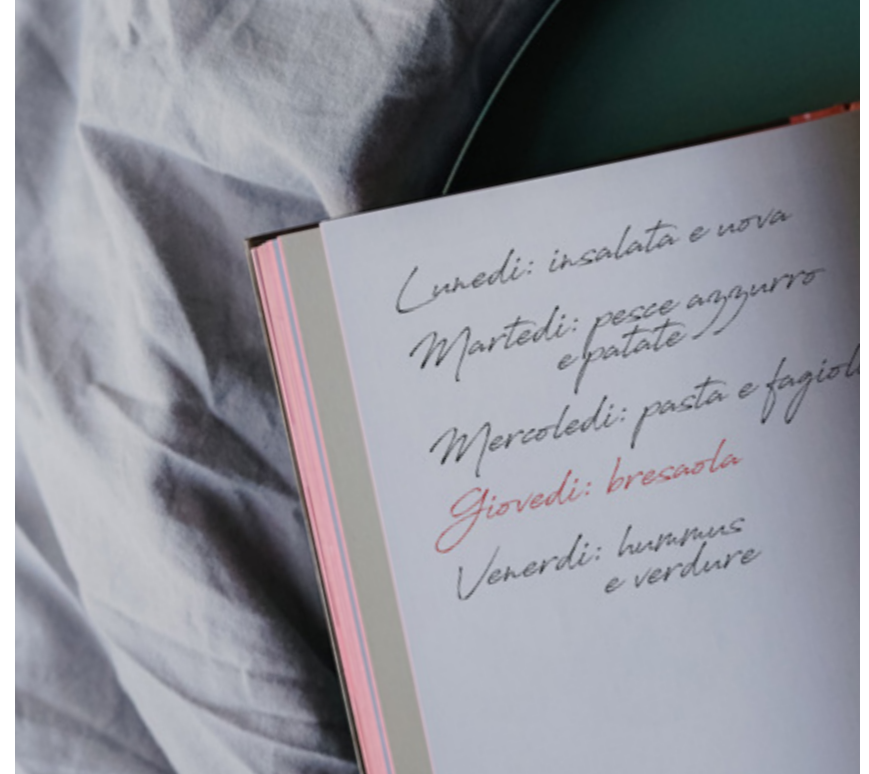 Lunedi: insalata e uova
Martedi: pesce azzurro
e patate
Mercoledi: pasta e fagiol
Giovedi: bresaola
Venerdi: hummus
e verdure